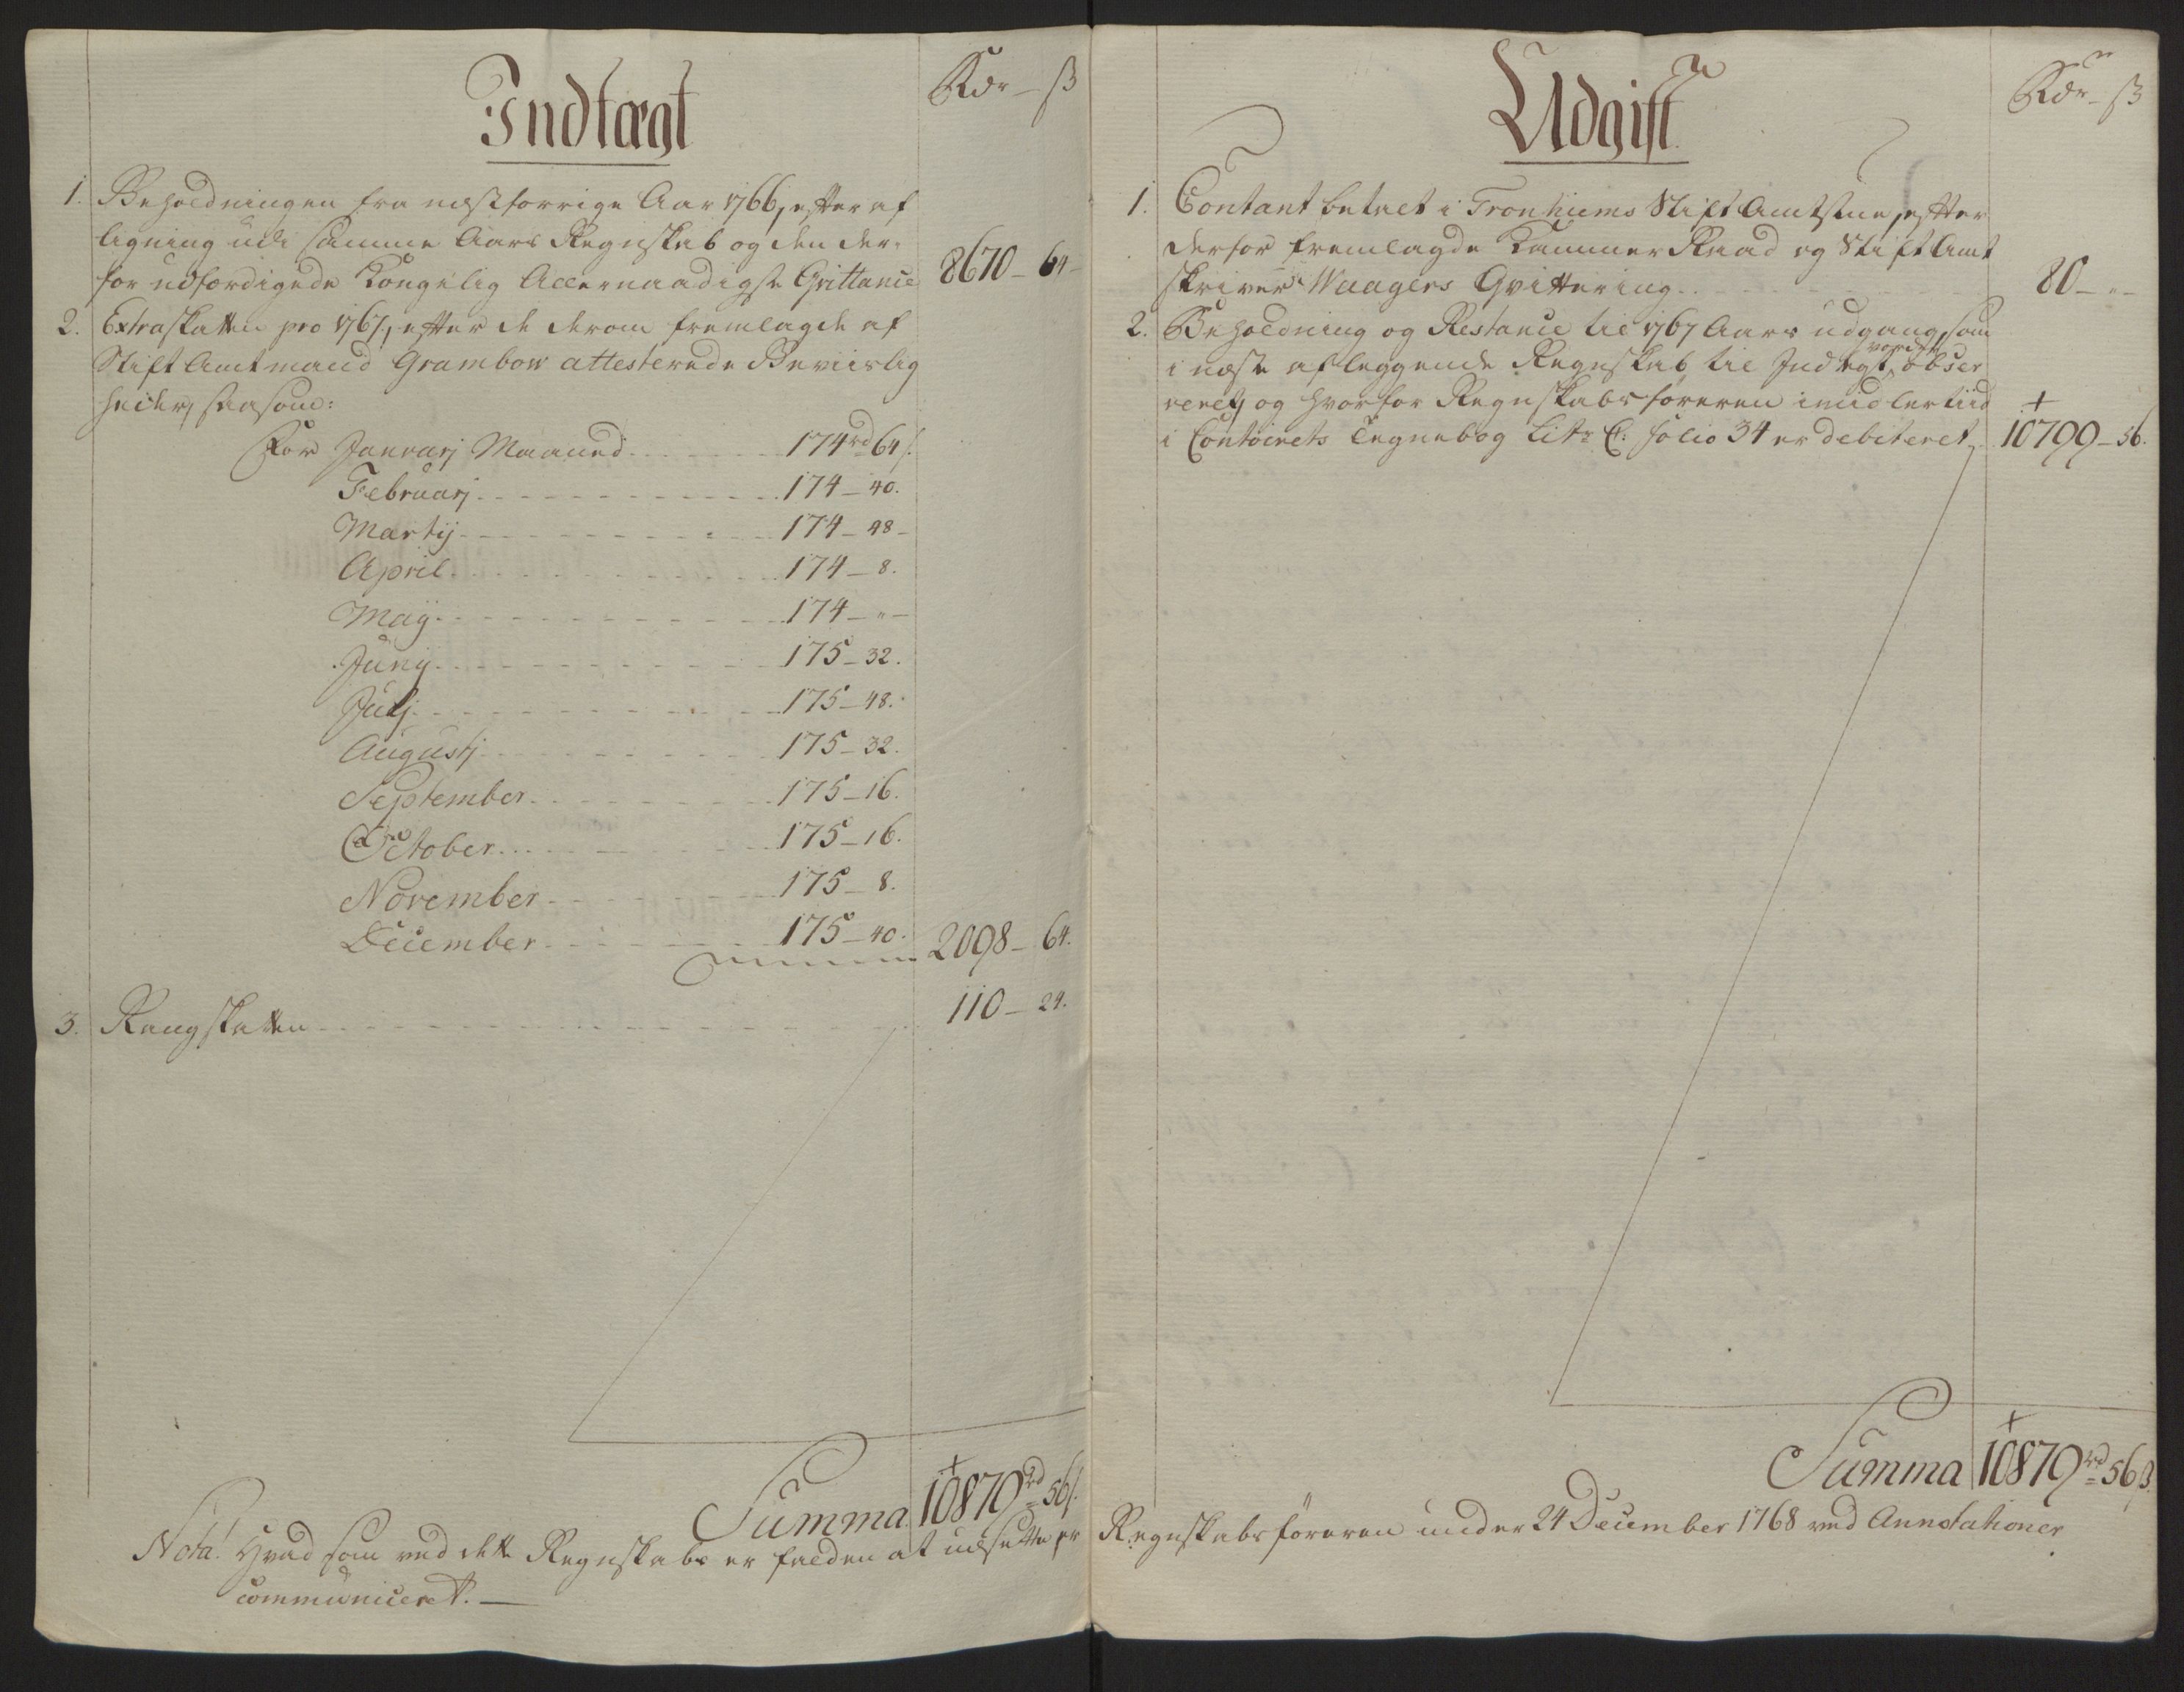 Indtægt
Rdr - ß
1. Beholdningen fra næstforrige Aar 1766, efter af
ligning udi samme Aars Regnskab og den der-
for udfærdigede Kongelig Allernaadigste Qvittance 8670 - 64 -
2. Extraskatten pro 1767, efter de derom fremlagde af
Stift Amtmand Grambow attesterede Beviislig
heder, saasom:
For Januarj Maaned 174 rd 64 s.
Februarj 174 - 40.
Martij 174 - 48 -
April 174 - 8.
Maij 174 - " -
Junij 175 - 32.
Julj 175 - 48.
Augustj 175 - 32.
September 175 - 16.
October 175 - 16.
November 175 - 8.
December 175 - 40. 2098 - 64.
3. Rangskatten 110 - 24.
Summa 10879 rd 56 s.
Nota! Hvad som ved dette Regnskab er falden at udsætte er
communiceret. —
Udgift
Rdr - ß
1. Contant betalt i Tronhiems Stift Amtstue, efter
derfor fremlagde Kammer Raad og Stift Amt
skriver Waagers Qvittering 80 - " -
2. Beholdning og Restance til 1767 Aars udgang, som
i næste aflæggende Regnskab til Indtægt vorder obser
veret, og hvorfor Regnskabsføreren imidlertiid
i Contoirets Tegnebog Litr. C: folio 34 er debiteret, 10799 - 56.
Summa 10879 rd 56 ß.
Regnskabsføreren under 24 December 1768 ved Annotationer